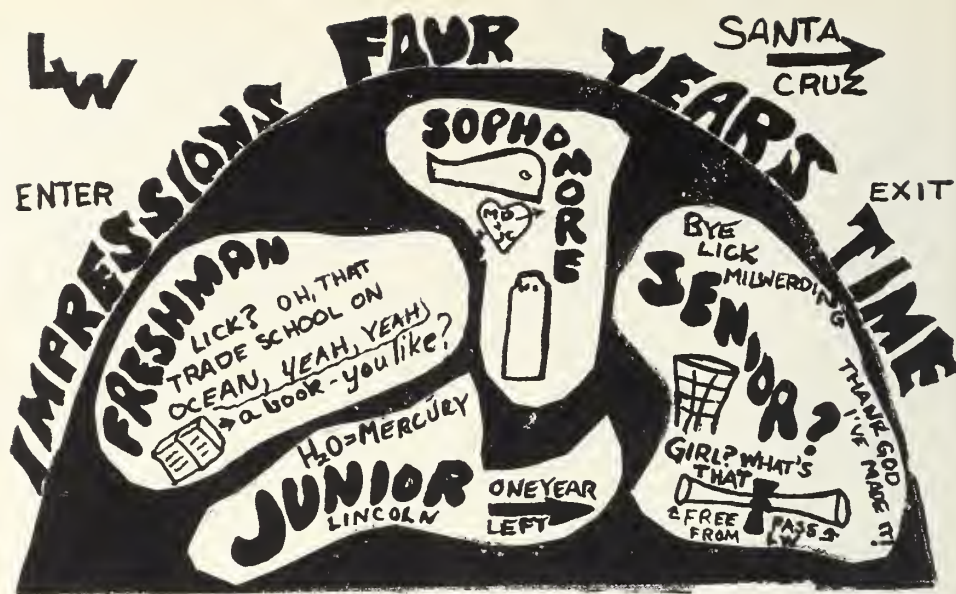 LW
IMPRESSIONS FOUR YEARS TIME
SANTA
CRUZ
ENTER
EXIT
FRESHMAN
LICK? OH, THAT
TRADE SCHOOL ON
OCEAN, YEAH, YEAH
a book - you like?
SOPHOMORE
MD
+
JC
H2O = MERCURY
JUNIOR
LINCOLN
ONE YEAR
LEFT
BYE
LICK
MILWERDING
SENIOR?
GIRL? WHAT'S
THAT
FREE
FROM
PASS
LW
THANK GOD
I'VE MADE IT!